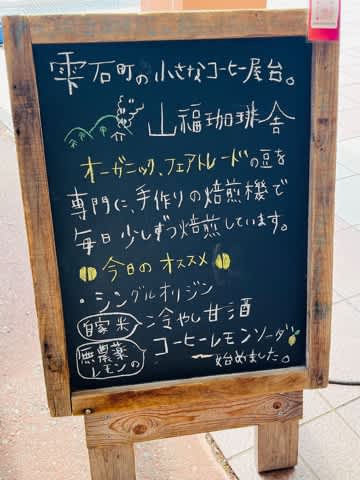 雫石町の小さなコーヒー屋台。
山福珈琲舎
オーガニック、フェアトレードの豆を
専門に、手作りの焙煎機で
毎日少しずつ焙煎しています。
今日のオススメ
・シングルオリジン
自家米 冷やし甘酒
無農薬レモンの コーヒーレモンソーダ
始めました。